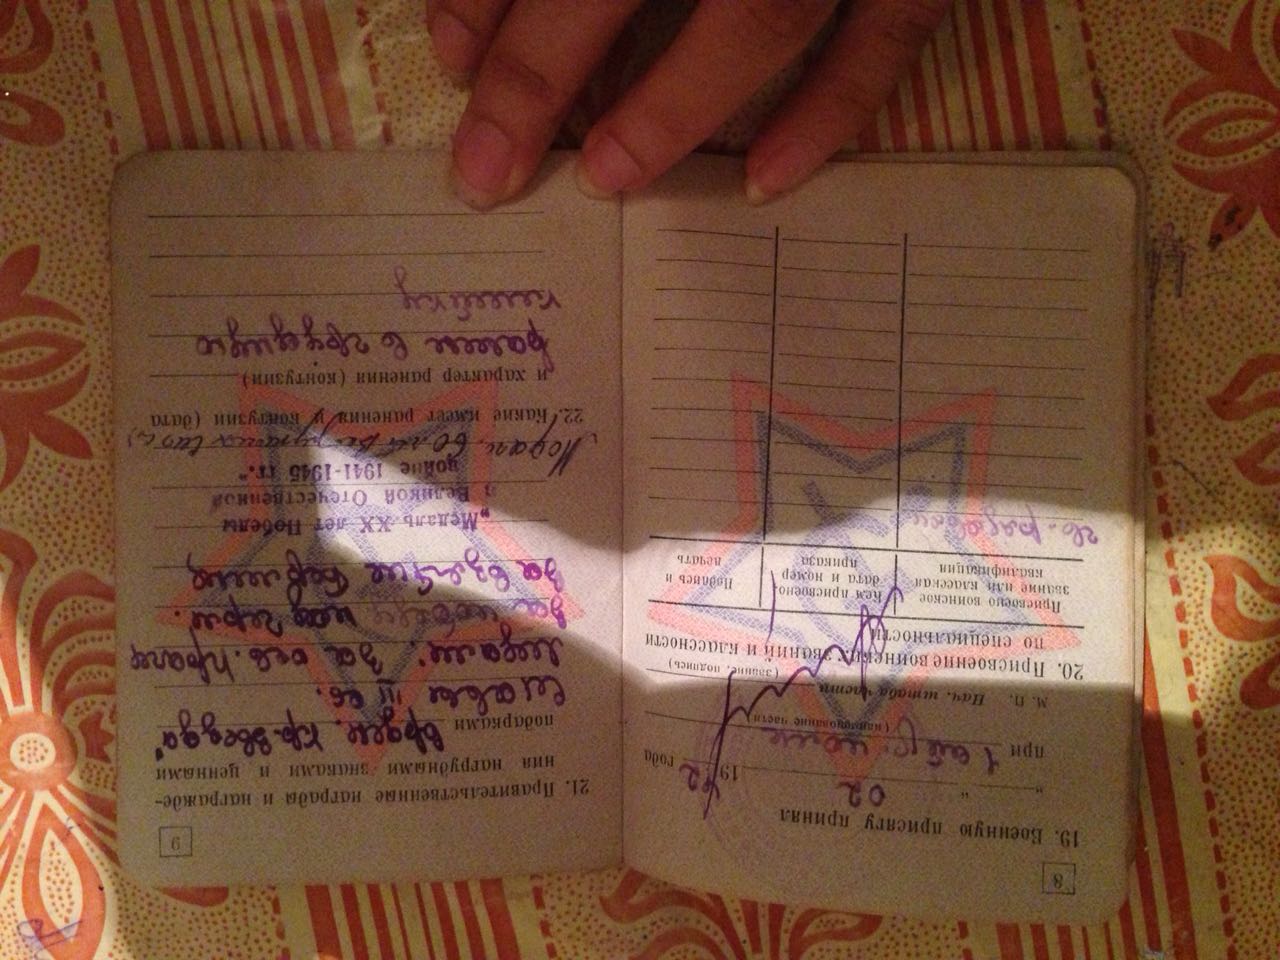 8
19. Военную присягу принял
"        " 02 1942 года
при 1
(наименование части)
М. П. Нач. штаба части
(звание, подпись)
20. Присвоение воинских званий и классности
по специальности
Присвоено воинское
звание или классная
квалификация
Кем присвоено,
дата и номер
приказа
Подпись и
печать
9
21. Правительственные награды и награжде-
ния нагрудными знаками и ценными
подарками Орден. Кр. Звезда"
Славы II ст.
Медали: За осв. Праги
За победу над герм.
За взятие Берлина
„Медаль XX лет Победы
в Великой Отечественной
войне 1941-1945 гг."
22. Какие имеет ранения и контузии (дата
и характер ранения (контузии)
ранен в грудную
клетку